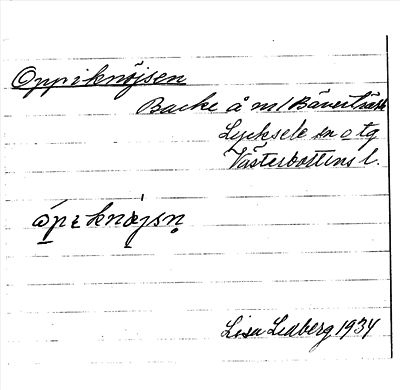 Oppi knöjsen
Backe å m/ Bäverträsk
Lycksele sn o tg
Västerbottens l.
ɷ́pɪ knøjsn̥
Lisa Lidberg 1934